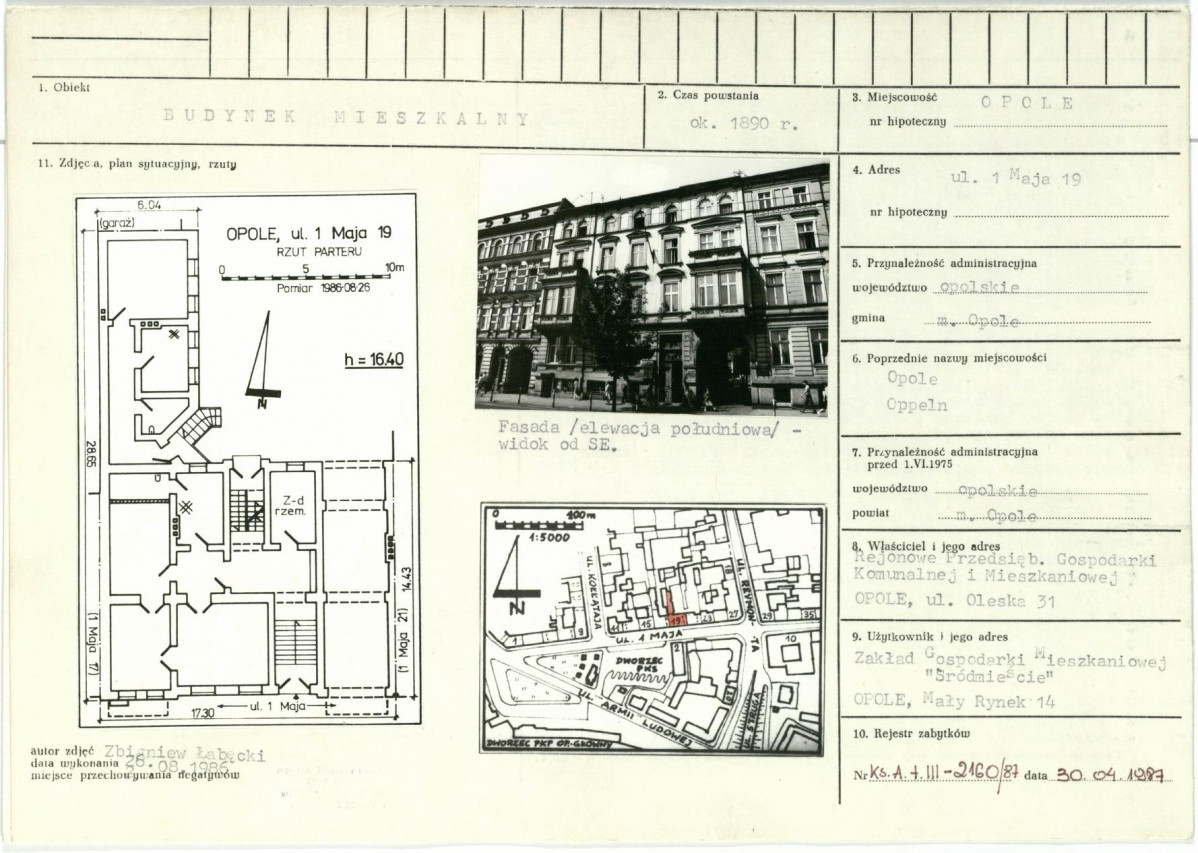 1. Obiekt
BUDYNEK MIESZKALNY
2. Czas powstania
ok. 1890 r.
3. Miejscowość OPOLE
nr hipoteczny
4. Adres
ul. 1 Maja 19
nr hipoteczny
5. Przynależność administracyjna
województwo opolskie
gmina m. Opole
6. Poprzednie nazwy miejscowości
Opole
Oppeln
7. Przynależność administracyjna
przed 1.VI.1975
województwo opolskie
powiat m. Opole
8. Właściciel i jego adres
Rejonowe Przedsięb. Gospodarki
Komunalnej i Mieszkaniowej
OPOLE, ul. Oleska 31
9. Użytkownik i jego adres
Zakład Gospodarki Mieszkaniowej
"Śródmieście"
OPOLE, Mały Rynek 14
10. Rejestr zabytków
Nr Ks.A.t.III-2160/87 data 30.04.1987
11. Zdjęcia, plan sytuacyjny, rzuty
6.04
(garaż)
OPOLE, ul. 1 Maja 19
RZUT PARTERU
0 5 10m
Pomiar 1986-08-26
h = 16.40
N
28.65
Z-d
rzem.
14.43
(1 Maja 17)
(1 Maja 21)
17.30
ul. 1 Maja
Fasada /elewacja południowa/ -
widok od SE.
0 100m
1:5000
N
UL. KOŁŁĄTAJA
UL. REYMON-TA
9 11 15 19 23 27 29 35
UL. 1 MAJA
2
10
DWORZEC
PKS
UL. ARMII LUDOWEJ
UL. STRUGA
DWORZEC PKP OP.-GŁÓWNY
autor zdjęć Zbigniew Łabęcki
data wykonania 26.08.1986.
miejsce przechowywania negatywów